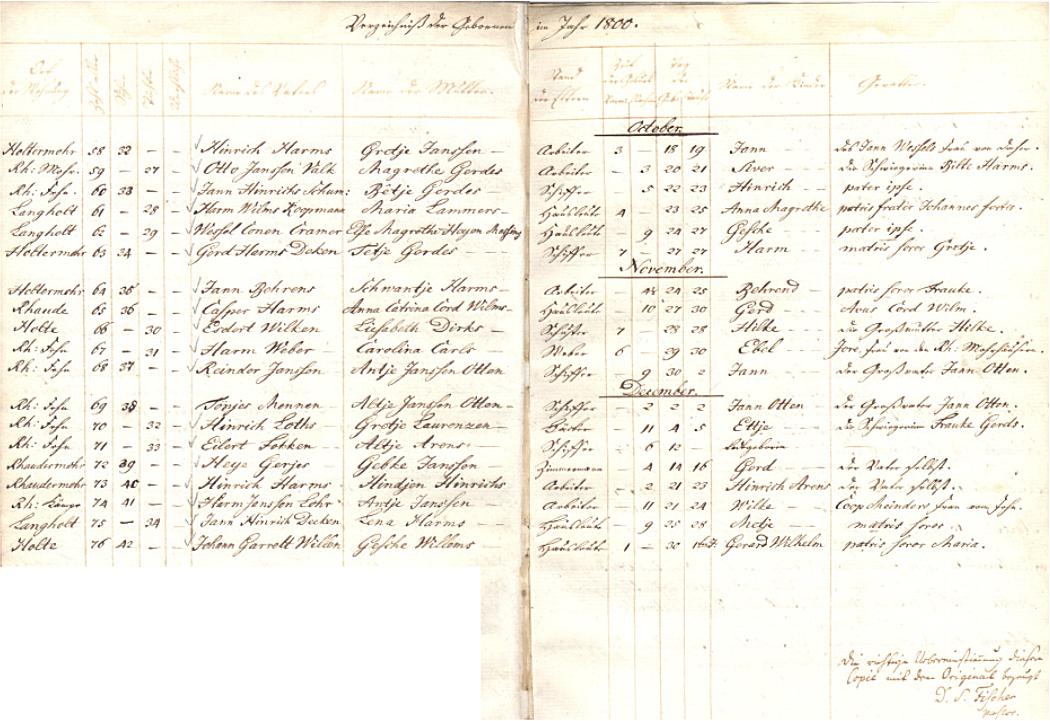 Verzeichniß der Gebornen im Jahr 1800.
Ort der Wohnung Söhne Töchter Uneheliche Name des Vaters Name der Mutter. Stand der Eltern Name der Kinder Gevatter.
October.
Holtermohr 58 32 — — Hinrich Harms Gretje Janssen — Arbeiter 3 — 18 19 Jann — des Jann Wessels Frau von
Rh: Mohr. 59 — 27 — Otto Janssen Valk Magrethe Gerdes Arbeiter — 3 20 21 Siver — die Schwiegerin Bilte Harms.
Rh: Fehn. 60 33 — — Jann Hinrichs Schum: Betje Gerdes — Schiffer — 5 22 23 Hinrich — pater ipse.
Langholt 61 — 28 — Harm Wilms Koopmann Maria Lammers — Hausleute 4 — 23 25 Anna Magrethe patris frater Johannes
Langholt 62 — 29 — Wessel Conen Cramer Magrethe Heyen Hausleute — 9 24 27 Gesche — pater ipse.
Holtermohr 63 34 — — Gerd Harms Deken Tetje Gerdes — Schiffer 7 — 27 27 Harm — matris soror Gretje.
November.
Holtermohr 64 35 — — Jann Behrens Schwantje Harms — Arbeiter — 24 25 Behrend — patris soror Frauke.
Rhaude 65 36 — — Casper Harms Anna Catrina Cord Wilms — Hausleute — 10 27 30 Gerd — Avus Cord Wilm.
Holte 66 — 30 — Evert Wilken Liesebeth Dirks — 7 — 28 28 Hilke — die Großmutter Hilke.
Rh: Fehn 67 — 31 — Harm Weber — Carolina Carls — Weber 6 — 29 30 Ebel — Frau von den Rh:
Rh: Fehn 68 37 — — Reinder Janssen Antje Janssen Otten Schiffer — 9 30 2 Jann — der Großvater Jann Otten.
December.
Rh: Fehn 69 38 — — Tonjes Mennen — Altje Janssen Otten — Schiffer — 2 2 2 Jann Otten der Großvater Jann Otten.
Rh: Fehn 70 — 32 — Hinrich Loths — Gretje Laurenzen — — 11 4 5 Ettje — die Schwiegerin Frauke Gerdes.
Rh: Fehn 71 — 33 — Eilert Fokken Altje Arens — Schiffer — 6 12 — todtgeboren
Rhaudermohr 72 39 — — Heye Gerjes — Gebke Janssen — Zimmermann — 4 14 16 Gerd — der Vater selbst.
Rhaudermohr 73 40 — — Hinrich Harms — Hindjen Hinrichs Arbeiter — 2 21 23 Hinrich Arens der Vater selbst.
Rh: Kämpe 74 41 — — Harm Janssen Lohr Antje Janssen — Arbeiter — 11 21 24 Wilke — Coop Meinders Frau vom Fehn.
Langholt 75 — 34 — Jann Hinrich Decken Lena Harms Hausleute — 9 25 28 Metje — matris soror —
Holte 76 42 — — Johann Garrelt Willen Gesche Willems — Hausleute 1 — 30 Gerard Wilhelm patris soror Maria.
Die richtige Uebereinstimmung dieser
Copie mit dem Original bezeugt
D. S. Fischer
pastor.